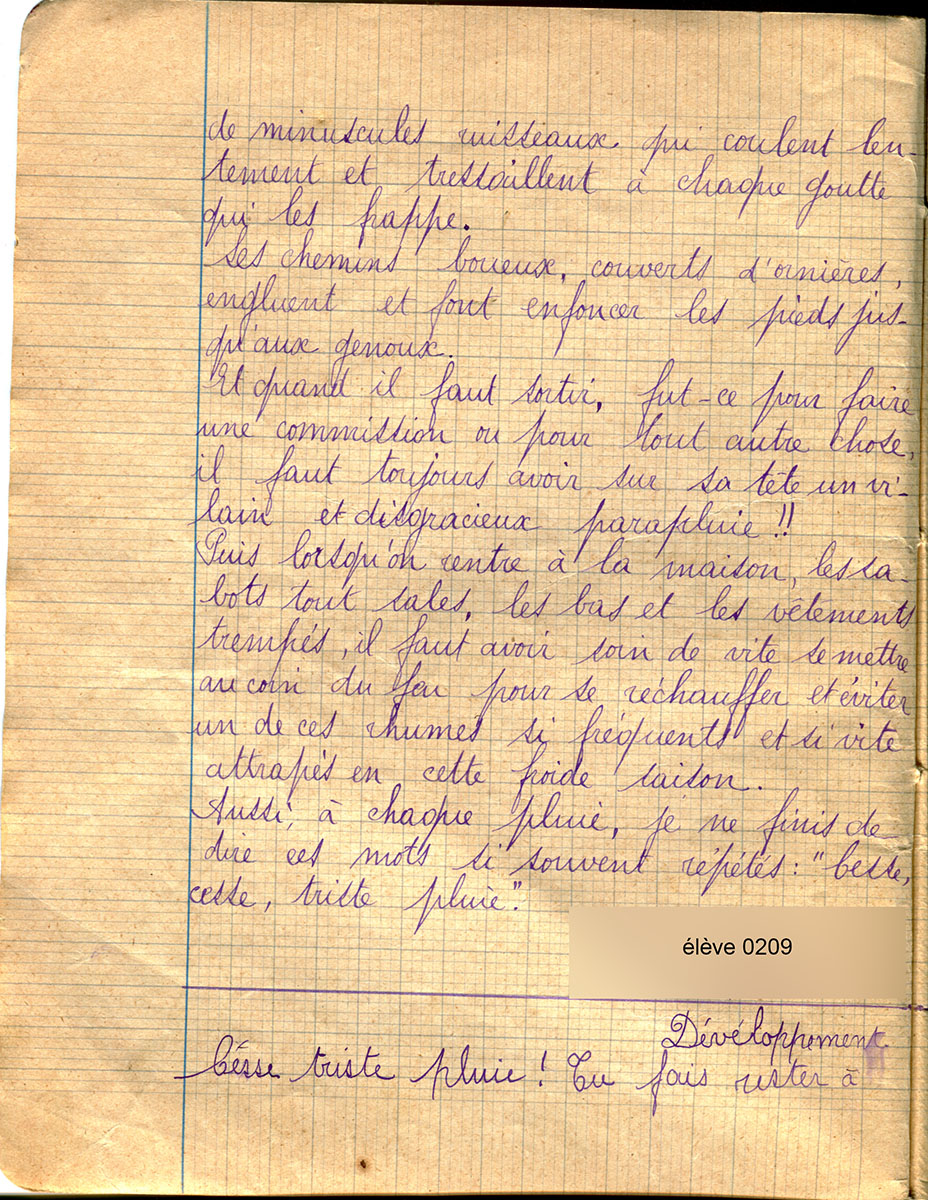 de minuscules ruisseaux qui coulent len-
tement et tressaillent à chaque goutte
qui les frappe.
Les chemins boueux, couverts d'ornières,
engluent et font enfoncer les pieds jus-
qu'aux genoux.
Et quand il faut sortir, fut-ce pour faire
une commission ou pour tout autre chose,
il faut toujours avoir sur sa tête un vi-
lain et disgracieux parapluie !!
Puis lorsqu'on rentre à la maison, les sa-
bots tout sales, les bas et les vêtements
trempés, il faut avoir soin de vite se mettre
au coin du feu pour se réchauffer et éviter
un de ces rhumes si fréquents et si vite
attrapés en cette froide saison.
Aussi, à chaque pluie, je ne finis de
dire ces mots si souvent répétés : "Cesse,
cesse, triste pluie".
élève 0209
Dévéloppement
Césse triste pluie ! Tu fais rester à